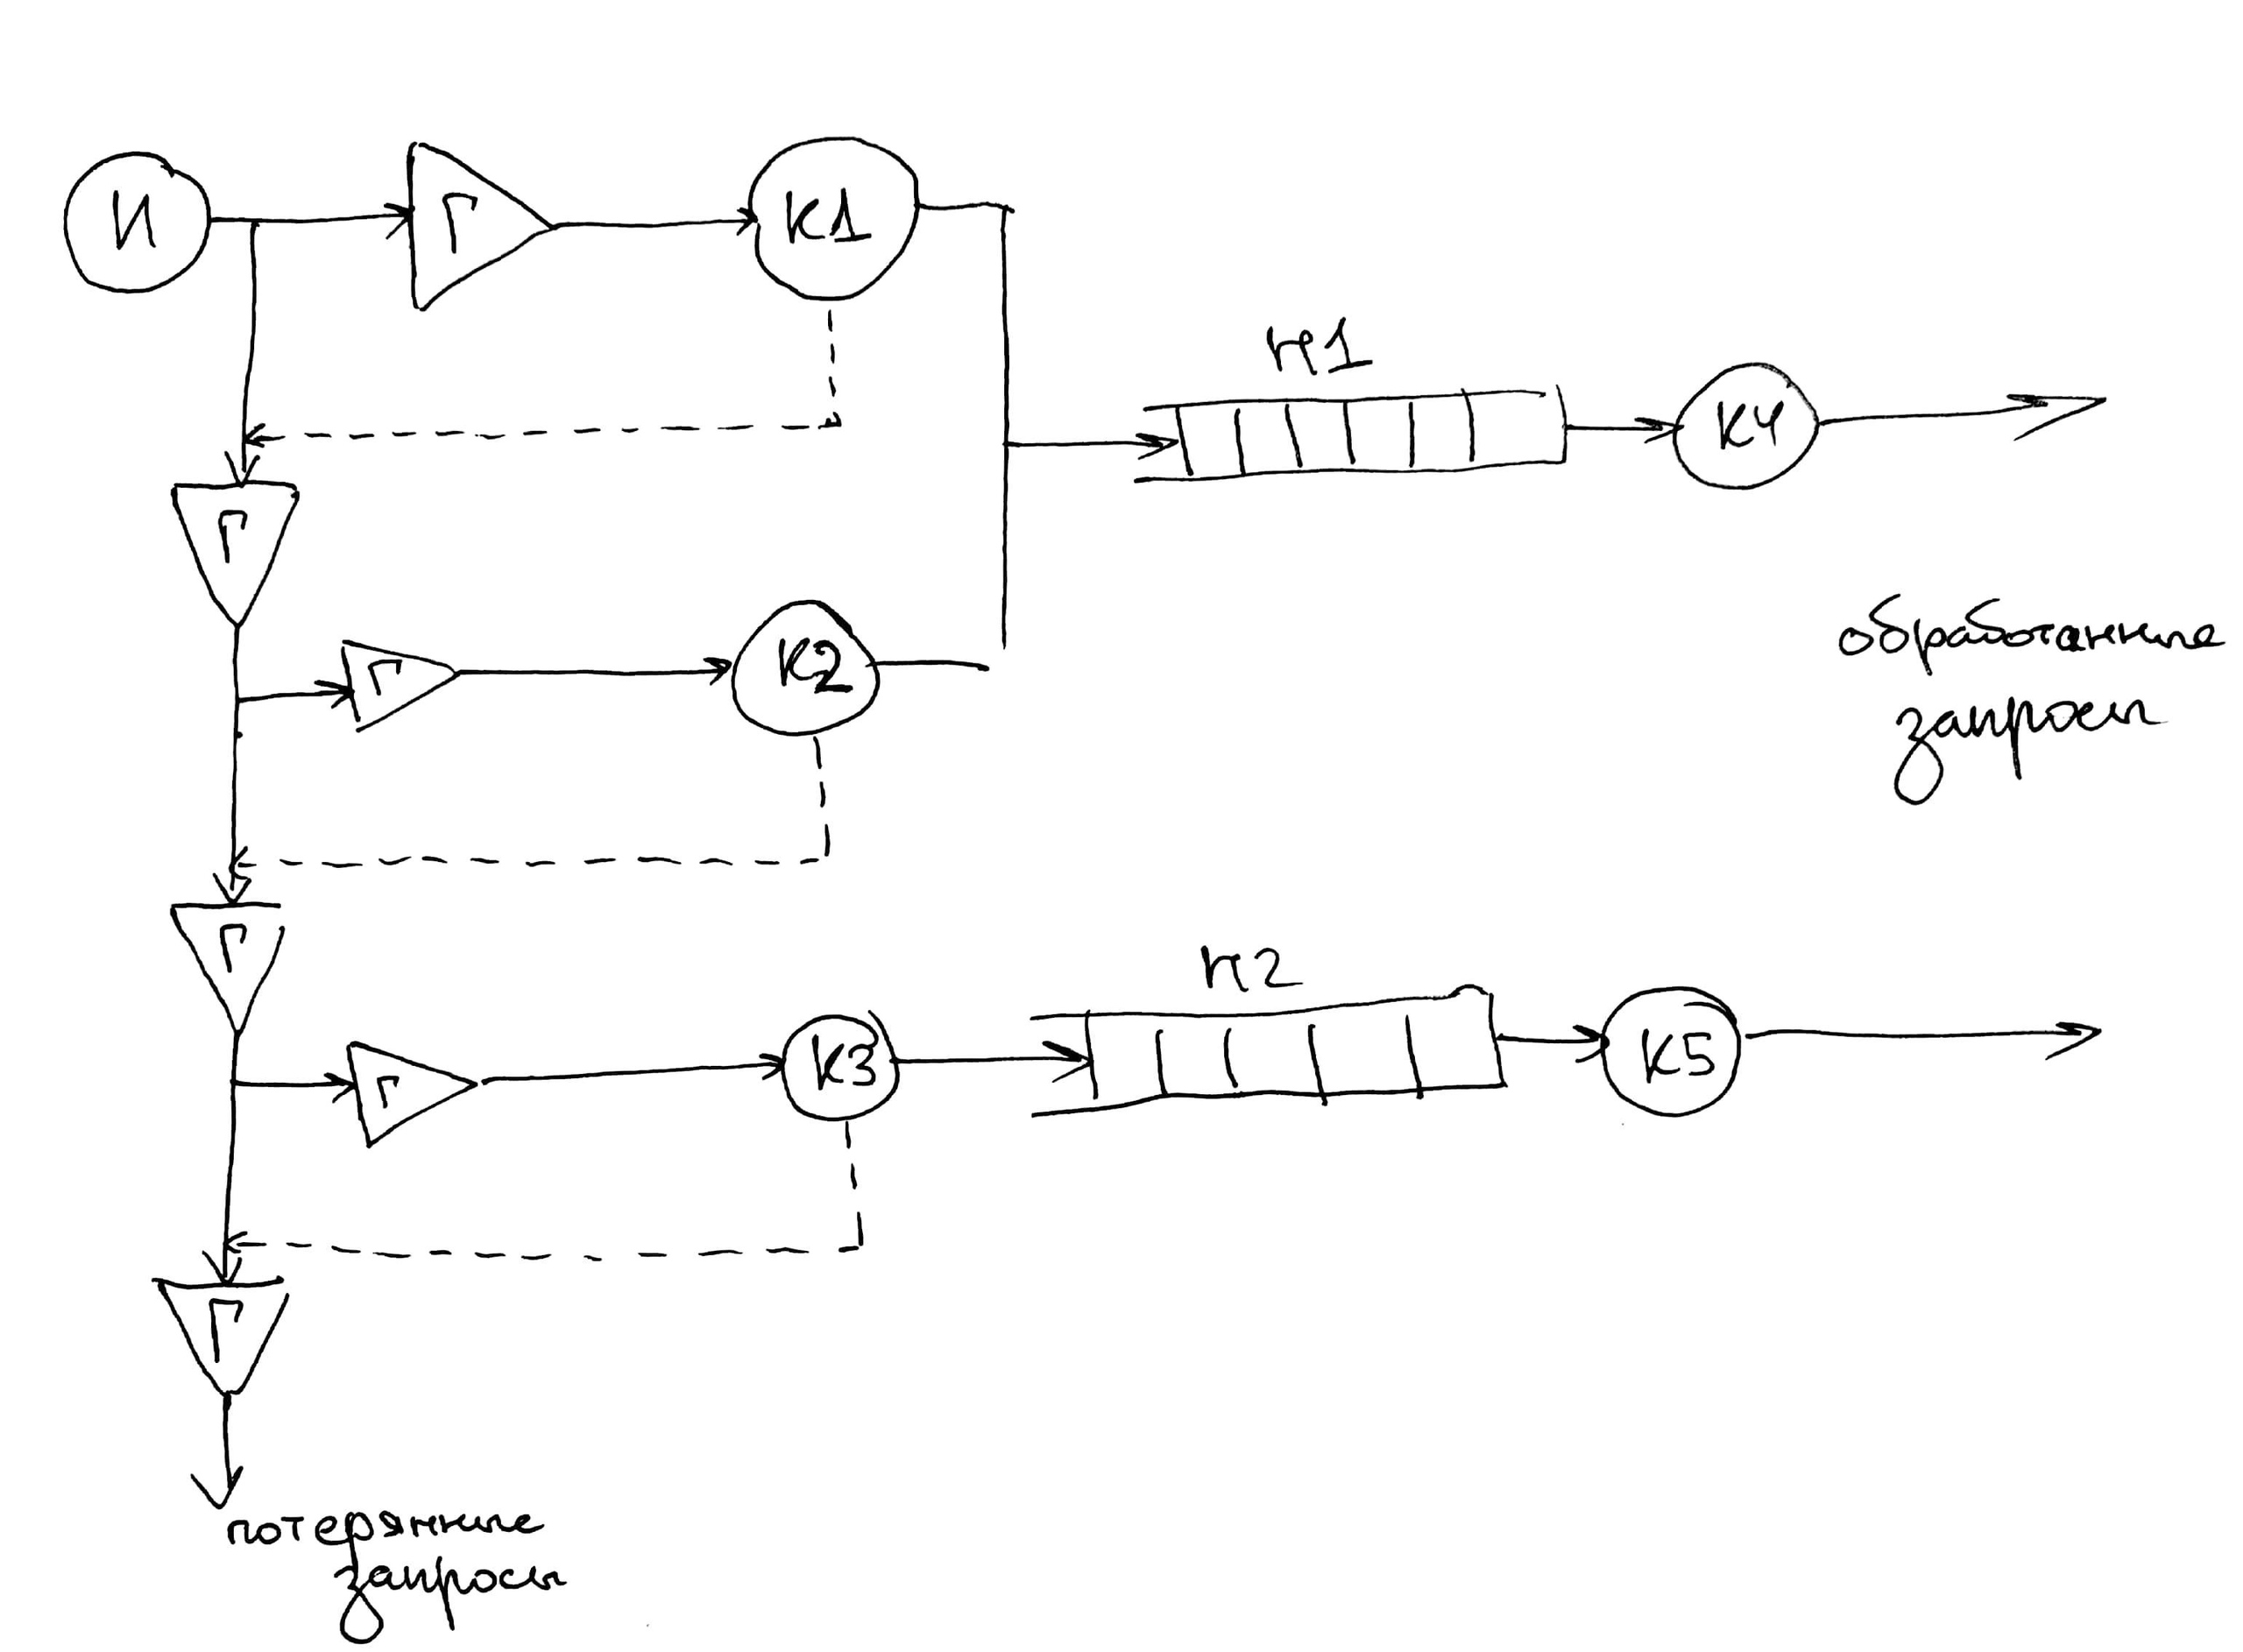 И
Г
К1
Н1
К4
Г
Г
К2
обработанные
запросы
Г
Н2
Г
К3
К5
Г
потерянные
запросы